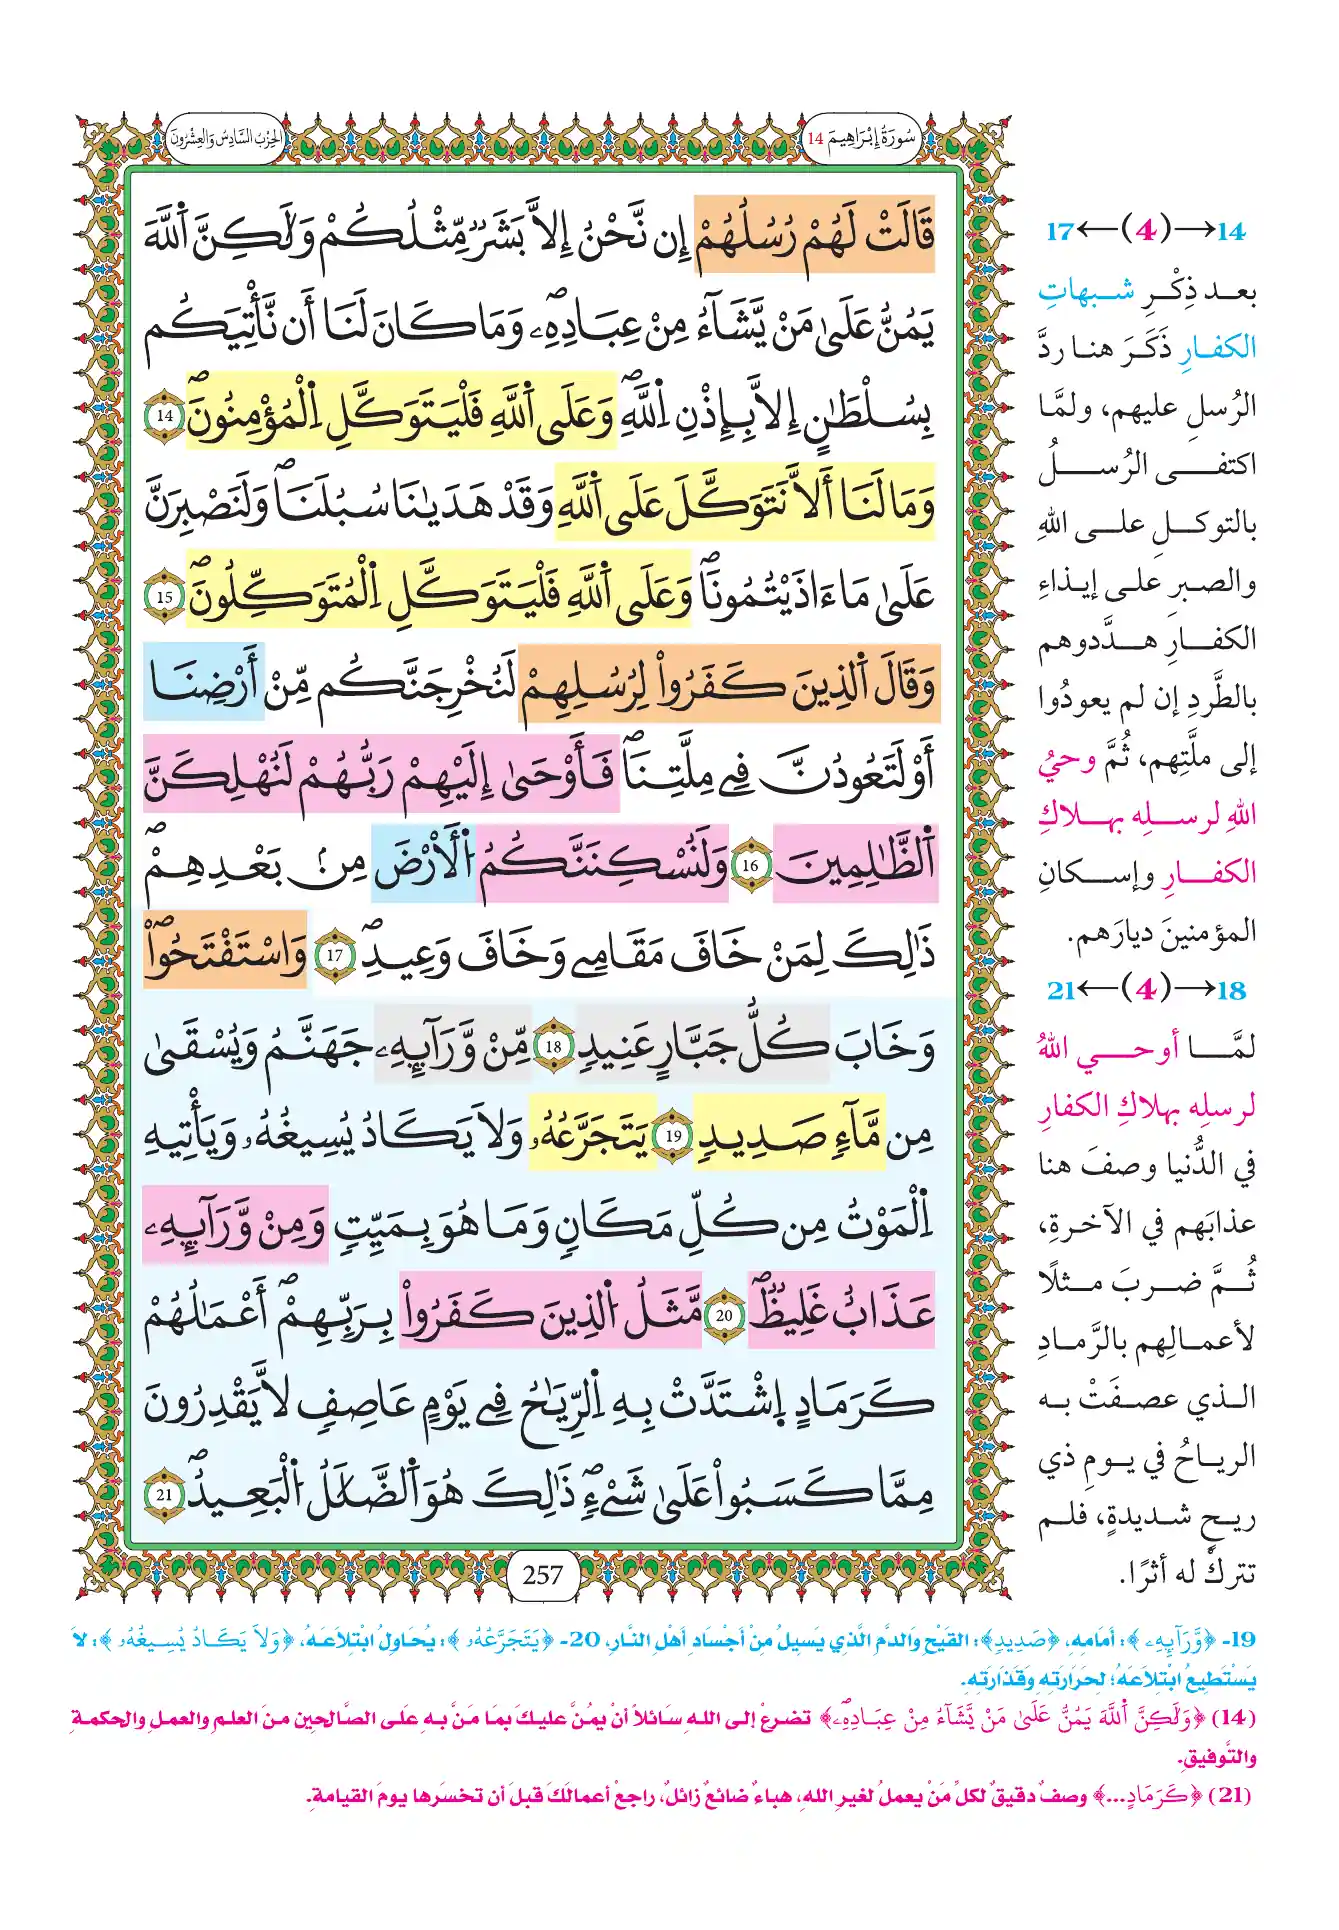 سُورَةُ إِبْرَاهِيمَ 14
الحِزْبُ السَّادِسُ وَالعِشْرُونَ
قَالَتْ لَهُمْ رُسُلُهُمْ إِن نَّحْنُ إِلَّا بَشَرٌ مِّثْلُكُمْ وَلَٰكِنَّ اَ۬للَّهَ
يَمُنُّ عَلَىٰ مَنْ يَّشَآءُ مِنْ عِبَادِهِۦۖ وَمَا كَانَ لَنَا أَن نَّأْتِيَكُم
بِسُلْطَٰنٍ إِلَّا بِإِذْنِ اِ۬للَّهِۖ وَعَلَى اَ۬للَّهِ فَلْيَتَوَكَّلِ اِ۬لْمُؤْمِنُونَۖ 14
وَمَا لَنَا أَلَّا نَتَوَكَّلَ عَلَى اَ۬للَّهِ وَقَدْ هَدَيٰنَا سُبُلَنَاۖ وَلَنَصْبِرَنَّ
عَلَىٰ مَا ءَاذَيْتُمُونَاۖ وَعَلَى اَ۬للَّهِ فَلْيَتَوَكَّلِ اِ۬لْمُتَوَكِّلُونَۖ 15
وَقَالَ اَ۬لذِينَ كَفَرُواْ لِرُسُلِهِمْ لَنُخْرِجَنَّكُم مِّنْ أَرْضِنَا
أَوْ لَتَعُودُنَّ فِے مِلَّتِنَاۖ فَأَوْحَىٰ إِلَيْهِمْ رَبُّهُمْ لَنُهْلِكَنَّ
اَ۬لظَّٰلِمِينَ 16 وَلَنُسْكِنَنَّكُمُ اُ۬لْأَرْضَ مِنۢ بَعْدِهِمْۖ
ذَٰلِكَ لِمَنْ خَافَ مَقَامِے وَخَافَ وَعِيدِۖ 17 وَاسْتَفْتَحُواْۖ
وَخَابَ كُلُّ جَبَّارٍ عَنِيدٍ 18 مِّنْ وَّرَآئِهِۦ جَهَنَّمُ وَيُسْقَىٰ
مِن مَّآءٍ صَدِيدٍ 19 يَتَجَرَّعُهُۥ وَلَا يَكَادُ يُسِيغُهُۥ وَيَأْتِيهِ
اِ۬لْمَوْتُ مِن كُلِّ مَكَانٍ وَمَا هُوَ بِمَيِّتٍ وَمِنْ وَّرَآئِهِۦ
عَذَابٌ غَلِيظٌۖ 20 مَّثَلُ اُ۬لذِينَ كَفَرُواْ بِرَبِّهِمْۖ أَعْمَٰلُهُمْ
كَرَمَادٍ اِ۪شْتَدَّتْ بِهِ اِ۬لرِّيَٰحُ فِے يَوْمٍ عَاصِفٍ لَّا يَقْدِرُونَ
مِمَّا كَسَبُواْ عَلَىٰ شَےْءٍۖ ذَٰلِكَ هُوَ اَ۬لضَّلَٰلُ اُ۬لْبَعِيدُۖ 21
257
14→(4)←17
بعد ذِكْرِ شبهاتِ
الكفارِ ذَكَرَ هنا ردَّ
الرُسلِ عليهم، ولمَّا
اكتفى الرُسلُ
بالتوكلِ على اللهِ
والصبرِ على إيذاءِ
الكفارِ هدَّدوهم
بالطَّردِ إن لم يعودُوا
إلى ملَّتِهم، ثُمَّ وحيُ
اللهِ لرسلِه بهلاكِ
الكفارِ وإسكانِ
المؤمنينَ ديارَهم.
18→(4)←21
لمَّا أوحى اللهُ
لرسلِه بهلاكِ الكفارِ
في الدُّنيا وصفَ هنا
عذابَهم في الآخرةِ،
ثُمَّ ضربَ مثلًا
لأعمالِهم بالرَّمادِ
الذي عصفَتْ به
الرياحُ في يومٍ ذي
ريحٍ شديدةٍ، فلم
تتركْ له أثرًا.
19- ﴿وَّرَآئِهِۦ﴾: أمَامِهِ، ﴿صَدِيدٍ﴾: القَيْحِ وَالدَّمِ الَّذِي يَسِيلُ مِنْ أجْسَادِ أهْلِ النَّارِ، 20- ﴿يَتَجَرَّعُهُۥ﴾: يُحَاوِلُ ابْتِلاَعَهُ، ﴿وَلَا يَكَادُ يُسِيغُهُۥ﴾: لاَ
يَسْتَطِيعُ ابْتِلاَعَهُ؛ لِحَرَارَتِهِ وَقَذَارَتِهِ.
(14) ﴿وَلَٰكِنَّ اَ۬للَّهَ يَمُنُّ عَلَىٰ مَنْ يَّشَآءُ مِنْ عِبَادِهِۦۖ﴾ تضرعْ إلى اللهِ سَائلاً أنْ يمُنَّ عليكَ بمَا مَنَّ بهِ عَلَى الصَّالحِينَ منَ العلمِ والعملِ والحكمةِ
والتَّوفيقِ.
(21) ﴿كَرَمَادٍ...﴾ وصفٌ دقيقٌ لكلِّ مَنْ يعملُ لغيرِ اللهِ، هباءٌ ضائعٌ زائلٌ، راجعْ أعمالَكَ قبلَ أن تخسَرها يومَ القيامةِ.